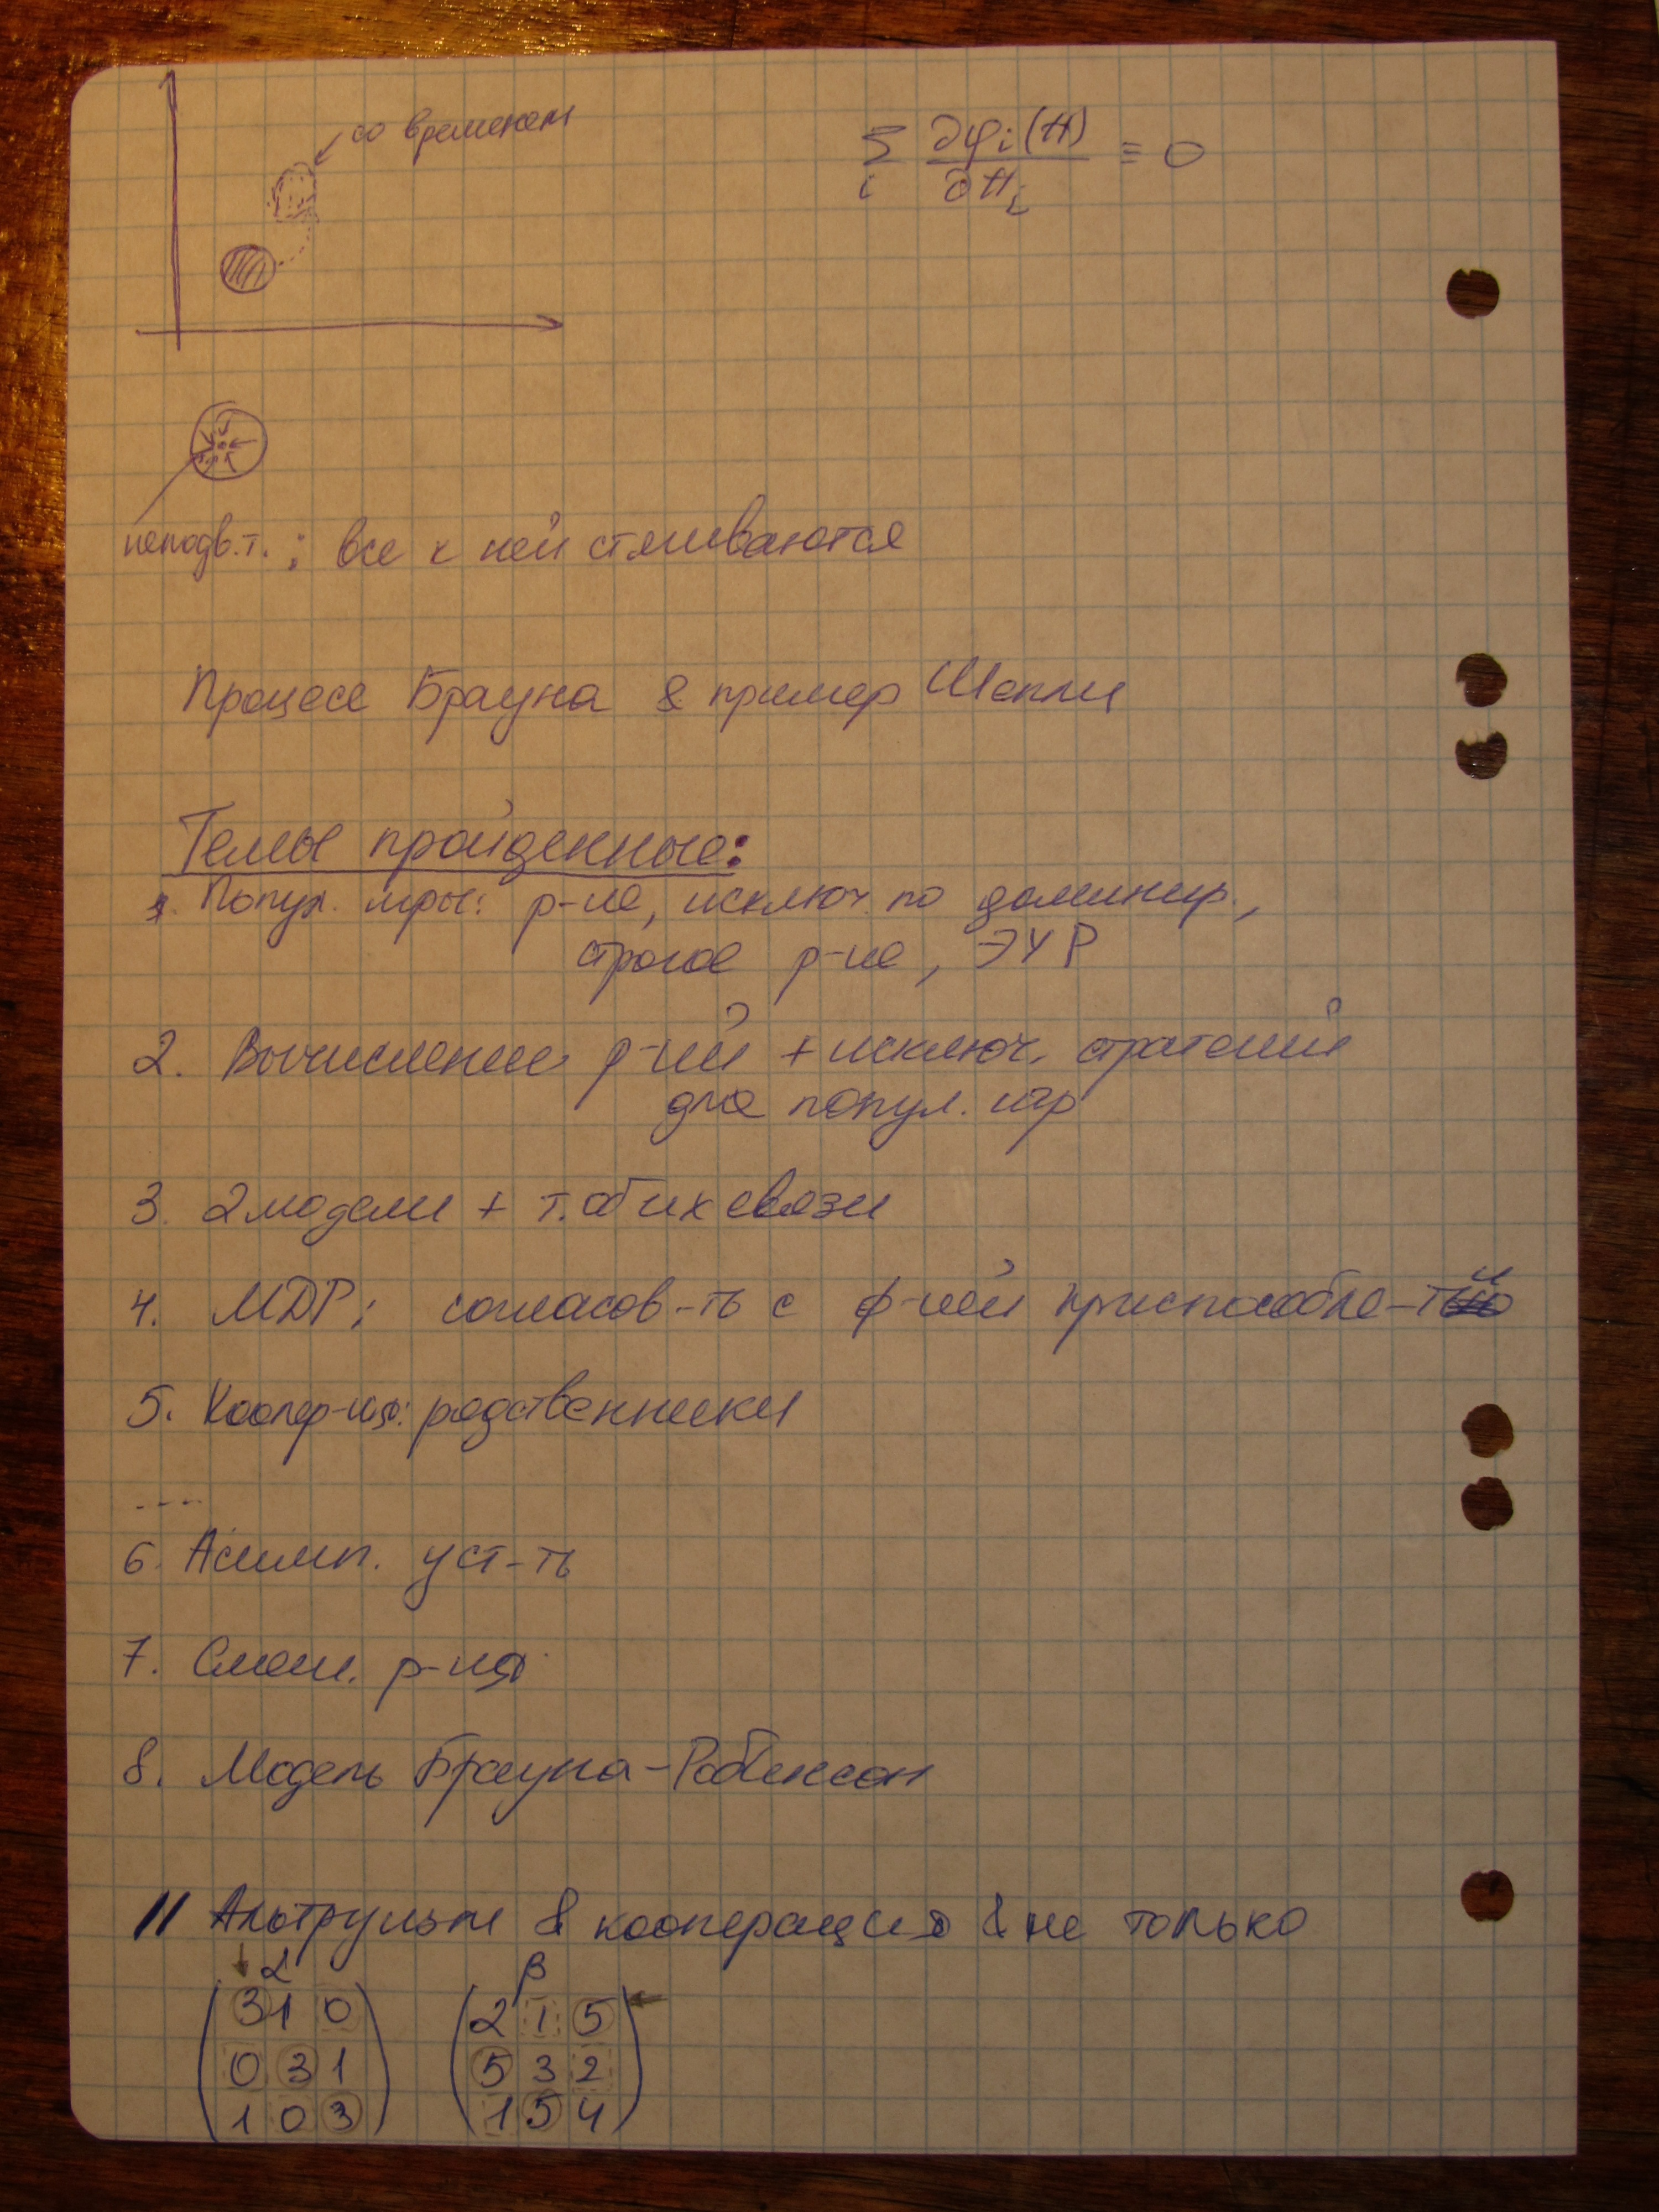 со временем
∑ ∂φi(π) / ∂πi ≡ 0
i
неподв.т. : все к ней стягиваются
Процесс Брауна & пример Шепли
Темы пройденные:
1. Попул. игры: р-ие, исключ. по доминир.,
строгое р-ие, ЭУР
2. Вычисление р-ий + исключ. стратегий
для попул. игр
3. 2 модели + т. об их связи
4. МДР; согласов-ть с ф-ией приспособле-ти
5. Коопер-ия: родственники
----
6. Асимп. уст-ть
7. Смеш. р-ия
8. Модель Брауна-Робинсон
|| Альтруизм & кооперация & не только
α β
3 1 0 2 1 5
0 3 1 5 3 2
1 0 3 1 5 4